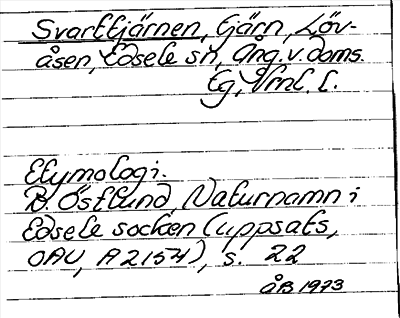 Svarttjärnen, tjärn, Löv-
åsen, Edsele sn, Ång. v. doms.
Tg, Vrnl. l.
Etymologi.
B. Östlund, Naturnamn i
Edsele socken (uppsats,
OAU, A 2154), s. 22
åB 1973